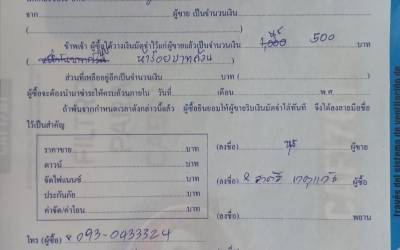 จาก ผู้ขาย เป็นจำนวนเงิน
( )
ข้าพเจ้า ผู้ซื้อได้วางเงินมัดจำไว้แก่ผู้ขายแล้วเป็นจำนวนเงิน 1,000 500 บาท
( ห้าร้อยบาทถ้วน )
ส่วนที่เหลืออยู่อีกเป็นจำนวนเงิน บาท ( )
ผู้ซื้อจะต้องนำมาชำระให้ครบถ้วนภายใน วันที่ เดือน พ.ศ.
ถ้าพ้นจากกำหนดเวลาดังกล่าวนี้แล้ว ผู้ซื้อยินยอมให้ผู้ขายริบเงินมัดจำได้ทันที จึงได้ลงลายมือชื่อ
ไว้เป็นสำคัญ
ราคาขาย บาท (ลงชื่อ) ผู้ขาย
ดาวน์ บาท
จัดไฟแนนซ์ บาท (ลงชื่อ) ผู้ซื้อ
ประกันภัย บาท
ค่าจัด/ค่าโอน บาท (ลงชื่อ) พยาน
โทร (ผู้ซื้อ) 093-0433324